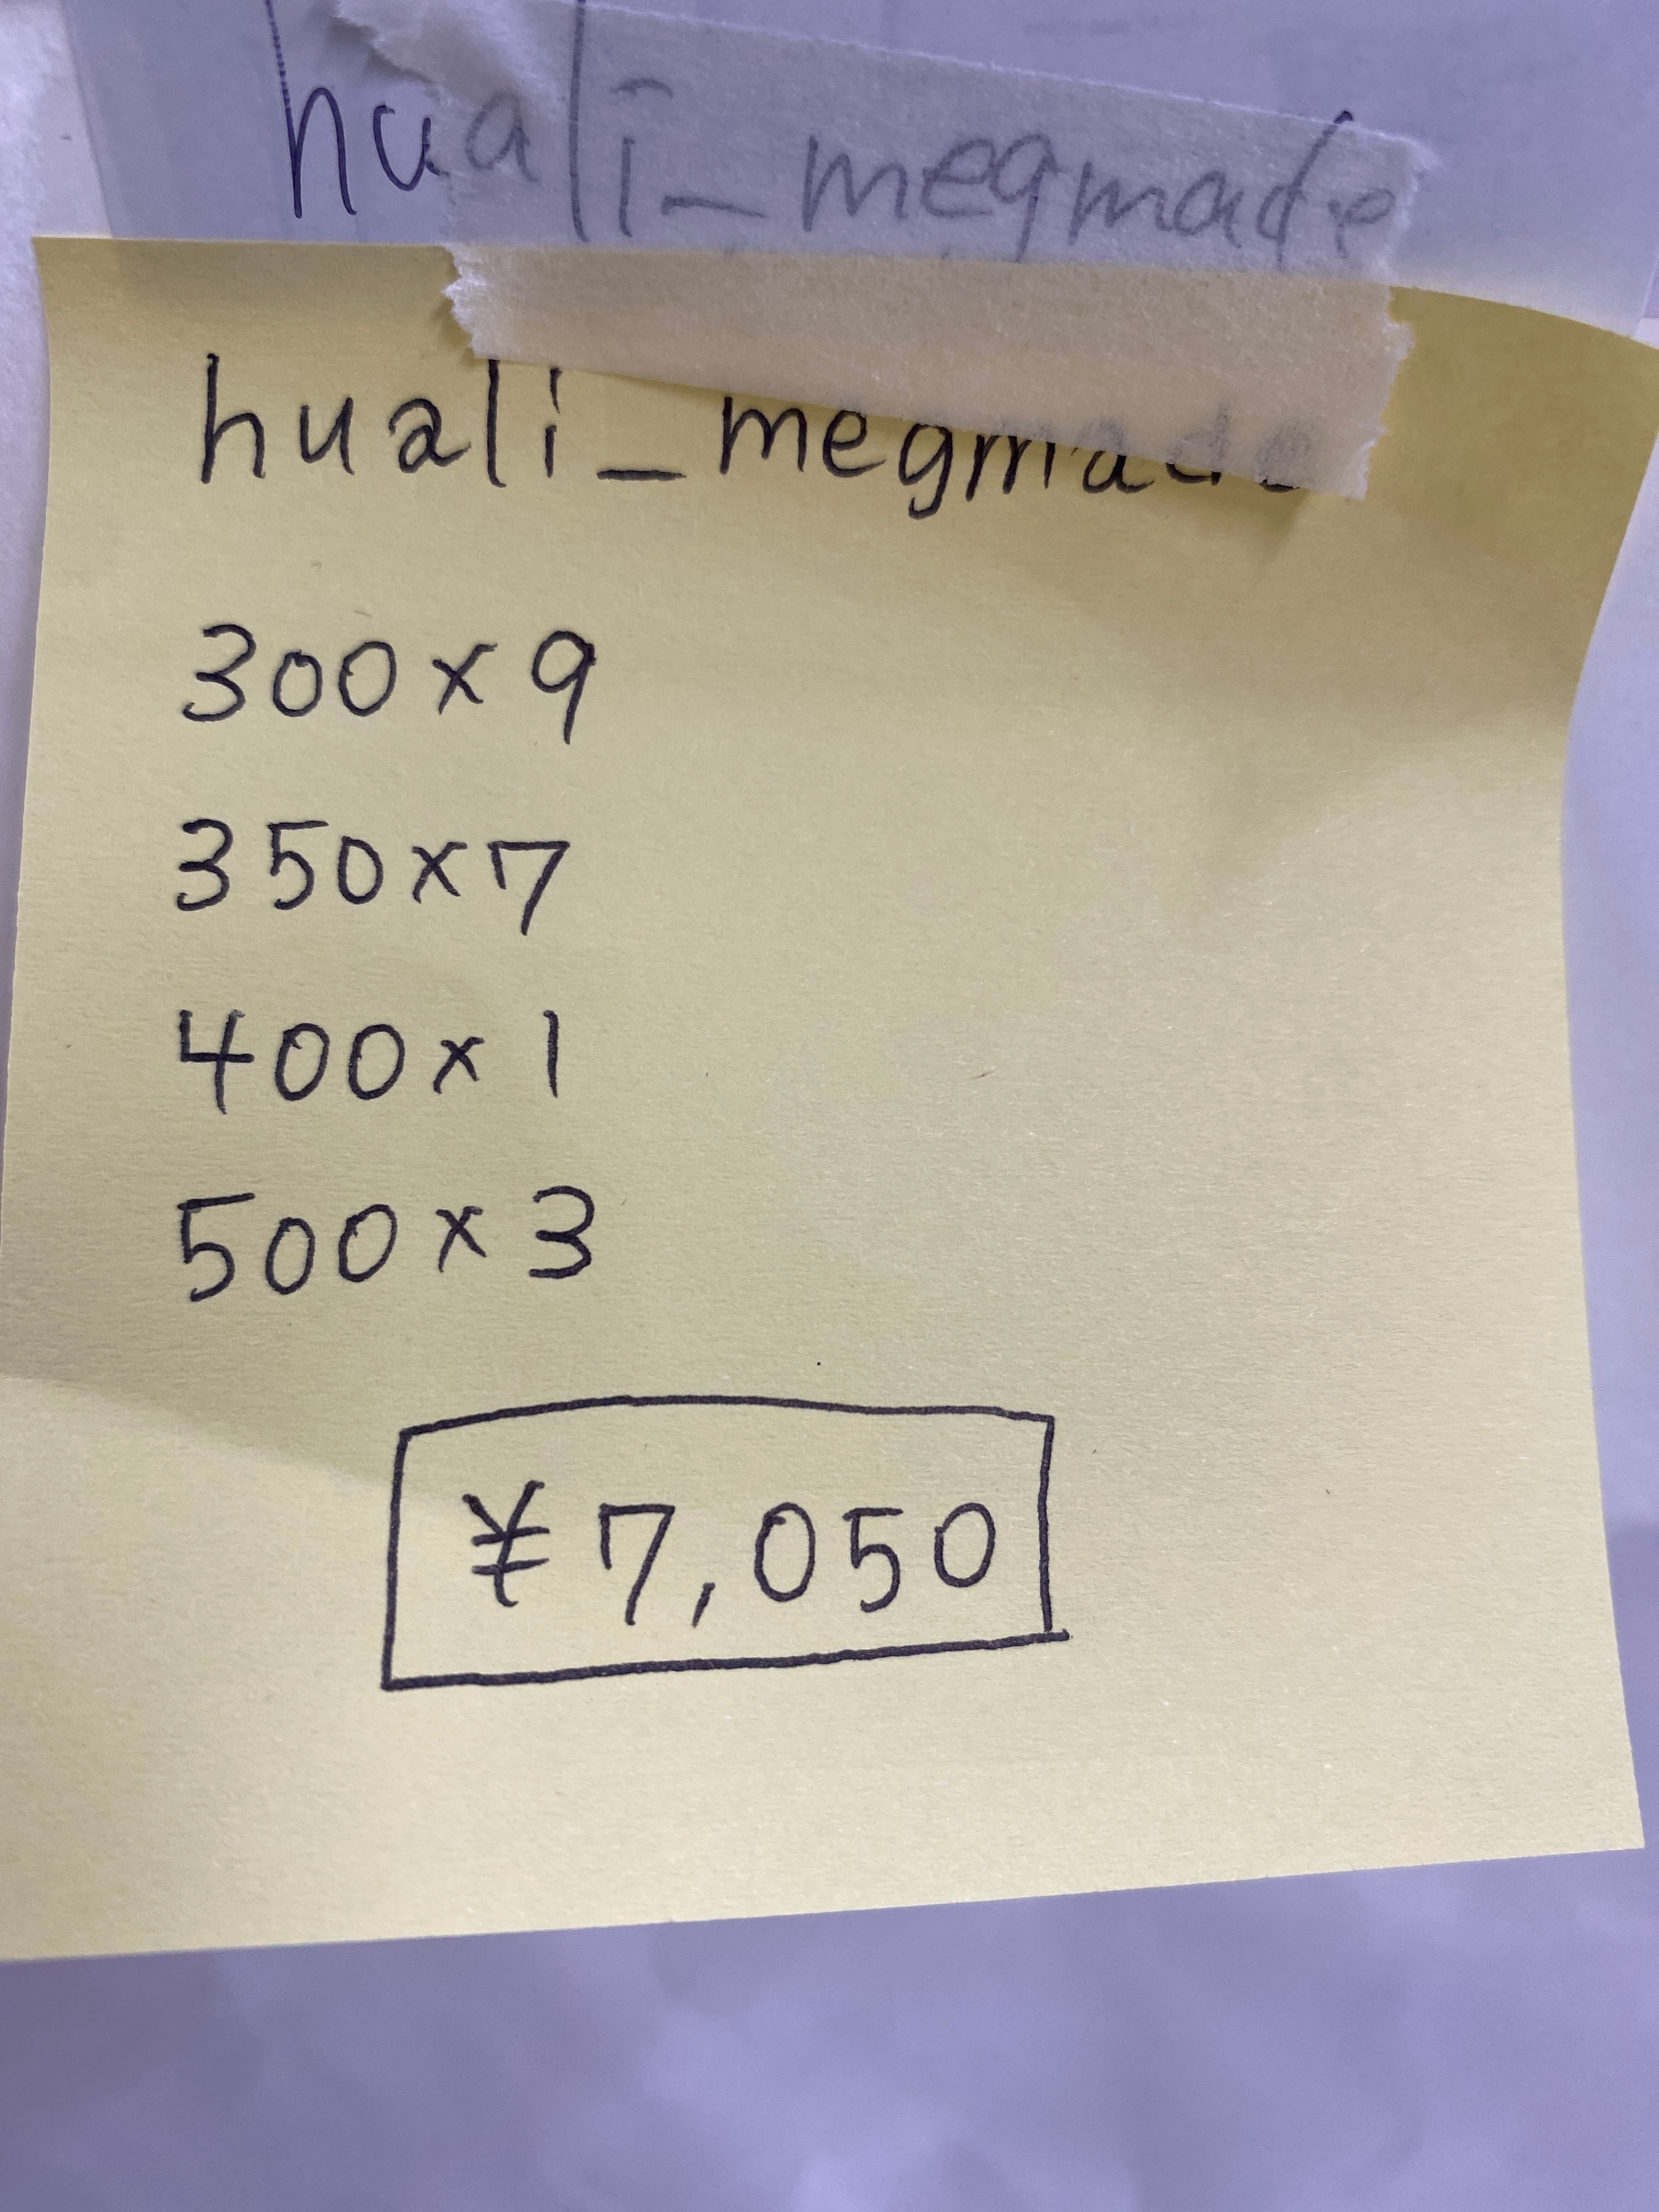 huali_megmade
huali_megmade
300×9
350×7
400×1
500×3
¥7,050